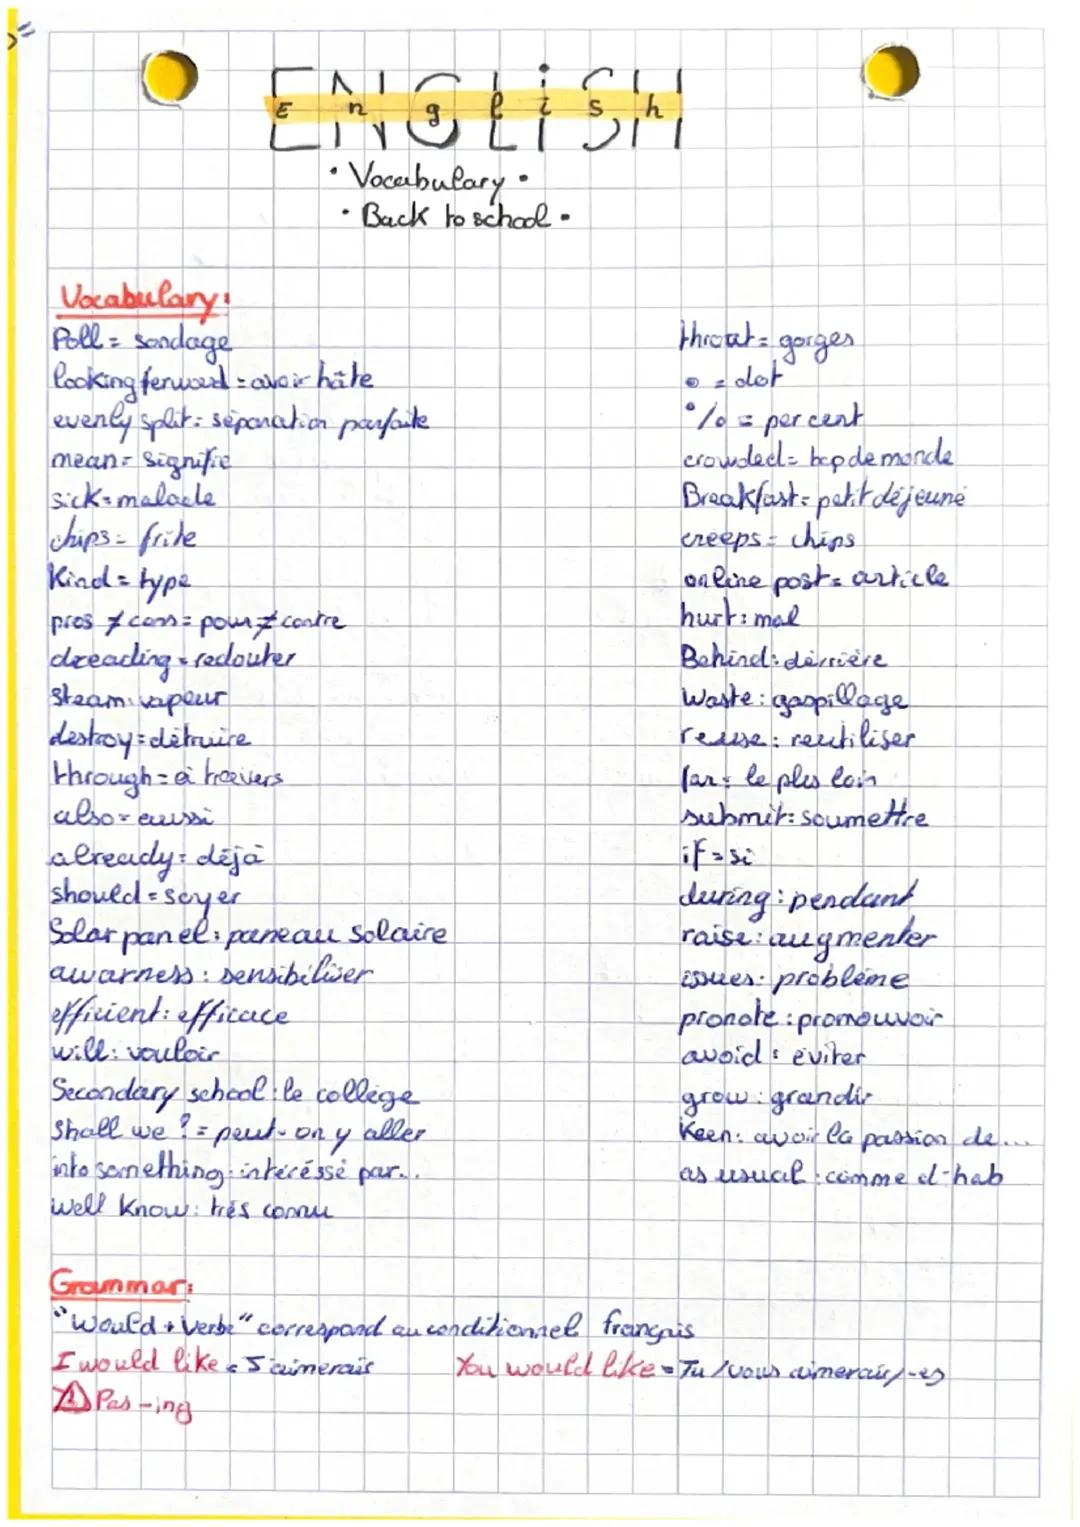 ENGLISH
English
• Vocabulary •
• Back to school •
Vocabulary:
Poll = sondage
looking forward = avoir hâte
evenly split: séparation parfaite
mean = signifie
sick = malade
chips = frite
Kind = type
pros ≠ cons = pour ≠ contre
dreading = redouter
steam: vapeur
destroy = détruire
through = à travers
also = aussi
already = déjà
should = soyer
Solar panel: paneau solaire
awarness: sensibiliser
efficient: efficace
will: vouloir
Secondary school: le collège
Shall we ? = peut-on y aller
into something: intéréssé par...
well know: très connu
throat = gorges
• = dot
% = per cent
crowded = bcp de monde
Breakfast = petit déjeuné
creeps = chips
online post = article
hurt: mal
Behind: dérrière
Waste: gaspillage
reuse: reutiliser
far: le plus loin
submit: soumettre
if = si
during: pendant
raise: augmenter
issues: problème
pronote: promouvoir
avoid: éviter
grow: grandir
Keen: avoir la passion de...
as usual: comme d'hab
Grammar:
"Would + Verbe" correspond au conditionnel français
I would like = J'aimerais You would like = Tu/vous aimerais/-ez
⚠ Pas -ing